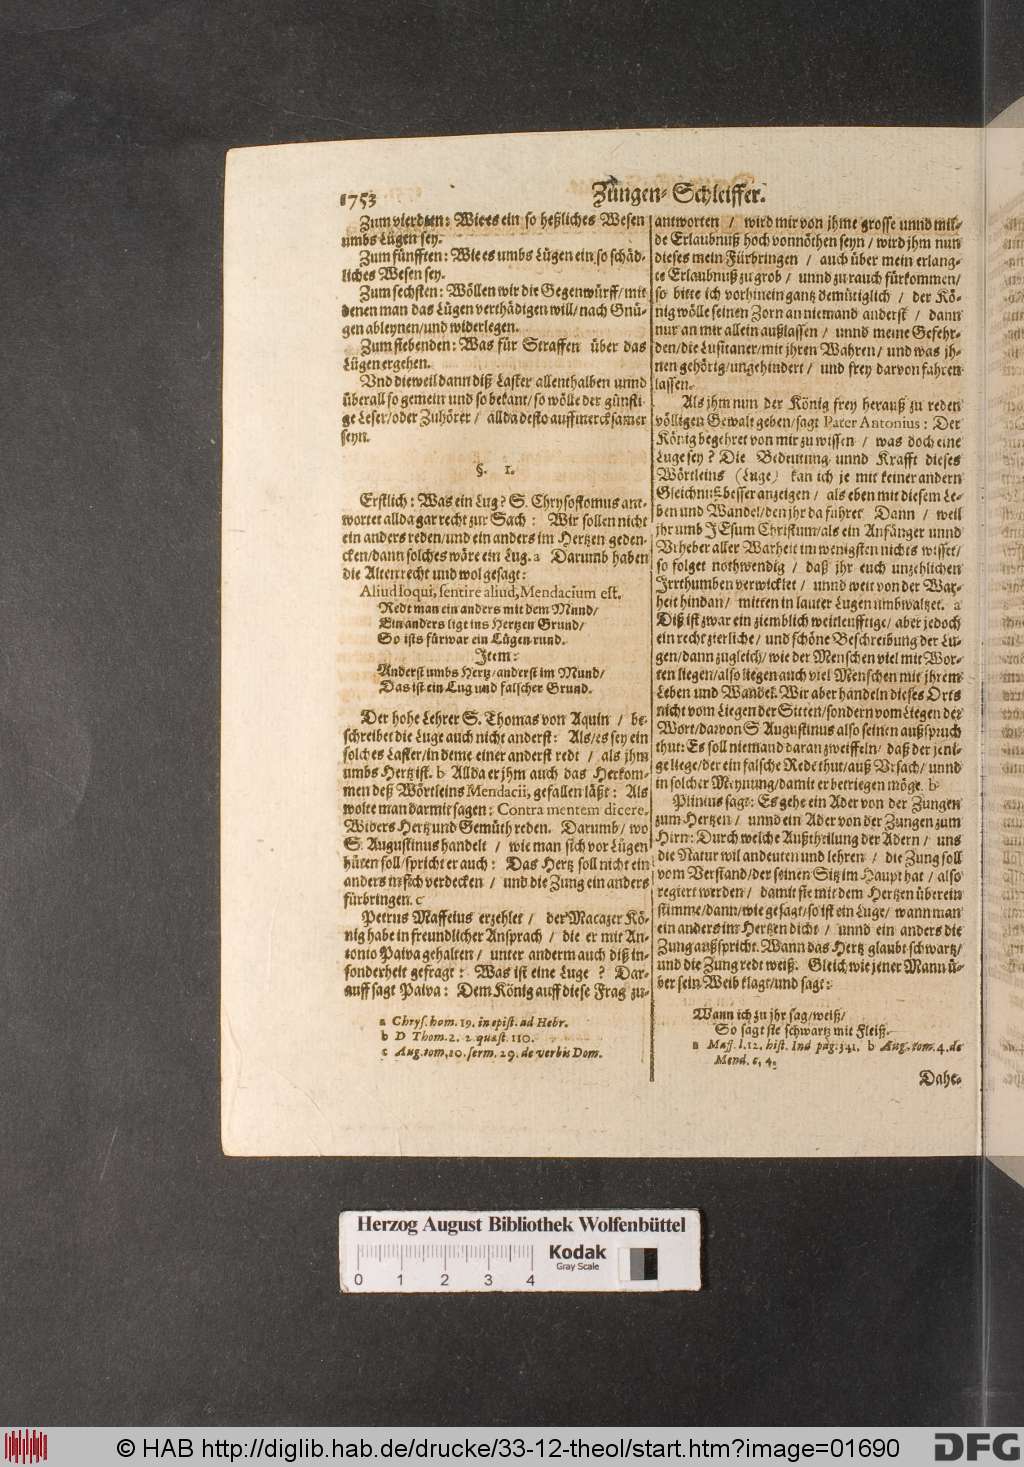 1753
Zungen-Schleiffer.
Zum vierdten: Wie es ein so heßliches Wesen
umbs Lügen sey.
Zum fünfften: Wie es umbs Lügen ein so schäd-
liches Wesen sey.
Zum sechsten: Wöllen wir die Gegenwürff/ mit
denen man das Lügen verthädigen will/ nach Gnü-
gen ableynen/ und widerlegen.
Zum siebenden: Was für Straffen über das
Lügen ergehen.
Vnd dieweil dann diß Laster allenthalben unnd
überall so gemein und so bekant/ so wölle der günsti-
ge Leser/ oder Zuhörer / allda desto auffmercksamer
seyn.
§. 1.
Erstlich: Was ein Lug? S. Chrysostomus ant-
wortet allda gar recht zur Sach: Wir sollen nicht
ein anders reden/ und ein anders im Hertzen geden-
cken/ dann solches wäre ein Lug. a Darumb haben
die Alten recht und wol gesagt:
Aliud loqui, sentire aliud, Mendacium est.
Redt man ein anders mit dem Mund/
Ein anders ligt ins Hertzen Grund/
So ists fürwar ein Lügen rund.
Item:
Anderst umbs Hertz/ anderst im Mund/
Das ist ein Lug und falscher Grund.
Der hohe Lehrer S. Thomas von Aquin / be-
schreibet die Luge auch nicht anderst: Als/ es sey ein
solches Laster/ in deme einer anderst redt / als jhm
umbs Hertz ist. b Allda er jhm auch das Herkom-
men deß Wörtleins Mendacii, gefallen läßt: Als
wolte man darmit sagen: Contra mentem dicere,
Widers Hertz und Gemüth reden. Darumb/ wo
S. Augustinus handelt / wie man sich vor Lügen
hüten soll/ spricht er auch: Das Hertz soll nicht ein
anders in sich verdecken / und die Zung ein anders
fürbringen. c
Petrus Maffeius erzehlet / der Macazer Kö-
nig habe in freundlicher Ansprach / die er mit An-
tonio Paiva gehalten / unter anderm auch diß in-
sonderheit gefragt: Was ist eine Luge? Dar-
auff sagt Paiva: Dem König auff diese Frag zu-
a Chrys. hom. 19. in epist. ad Hebr.
b D Thom. 2. 2. quæst. 110.
c Aug. tom. 10. serm. 29. de verbis Dom.
antworten / wird mir von jhme grosse unnd mil-
de Erlaubnuß hoch vonnöthen seyn/ wird jhm nun
dieses mein Fürbringen / auch über mein erlang-
te Erlaubnuß zu grob / unnd zu rauch fürkommen/
so bitte ich vorhinein gantz demütiglich / der Kö-
nig wölle seinen Zorn an niemand anderst / dann
nur an mir allein außlassen / unnd meine Gefehr-
den/ die Lusitaner/ mit jhren Wahren/ und was jh-
nen gehörig/ ungehindert / und frey darvon fahren
lassen.
Als jhm nun der König frey herauß zu reden
völligen Gewalt geben/ sagt Pater Antonius: Der
König begehret von mir zu wissen / was doch eine
Luge sey? Die Bedeutung unnd Krafft dieses
Wörtleins (Luge) kan ich je mit keiner andern
Gleichnuß besser anzeigen / als eben mit diesem Le-
ben und Wandel/ den jhr da führet Dann / weil
jhr umb JEsum Christum/ als ein Anfänger unnd
Vrheber aller Warheit im wenigsten nichts wisset/
so folget nothwendig / daß jhr euch unzehlichen
Irrthumben verwicklet / unnd weit von der War-
heit hindan/ mitten in lauter Lugen umbwaltzet. a
Diß ist zwar ein ziemblich weitleufftige/ aber jedoch
ein recht zierliche/ und schöne Beschreibung der Lu-
gen/ dann zugleich/ wie der Menschen viel mit Wor-
ten liegen/ also liegen auch viel Menschen mit jhrem
Leben und Wandel. Wir aber handeln dieses Orts
nicht vom Liegen der Sitten/ sondern vom Liegen der
Wort/ darvon S Augustinus also seinen außspruch
thut: Es soll niemand daran zweiffeln/ daß der jeni-
ge liege/ der ein falsche Rede thut/ auß Vrsach/ unnd
in solcher Meynung/ damit er betriegen möge. b
Plinius sagt: Es gehe ein Ader von der Zungen
zum Hertzen / unnd ein Ader von der Zungen zum
Hirn: Durch welche Außtheilung der Adern / uns
die Natur wil andeuten und lehren / die Zung soll
vom Verstand/ der seinen Sitz im Haupt hat / also
regiert werden / damit sie mit dem Hertzen überein
stimme/ dann/ wie gesagt/ so ist ein Luge/ wann man
ein anders im Hertzen dicht / unnd ein anders die
Zung außspricht. Wann das Hertz glaubt schwartz/
und die Zung redt weiß. Gleich wie jener Mann ü-
ber sein Weib klagt/ und sagt:
Wann ich zu jhr sag/ weiß/
So sagt sie schwartz mit Fleiß.
a Maff. l. 12. hist. Ind pag. 341. b Aug. tom. 4. de
Mend. c. 4.
Dahe-
Herzog August Bibliothek Wolfenbüttel
Kodak
Gray Scale
0 1 2 3 4
© HAB http://diglib.hab.de/drucke/33-12-theol/start.htm?image=01690
DFG